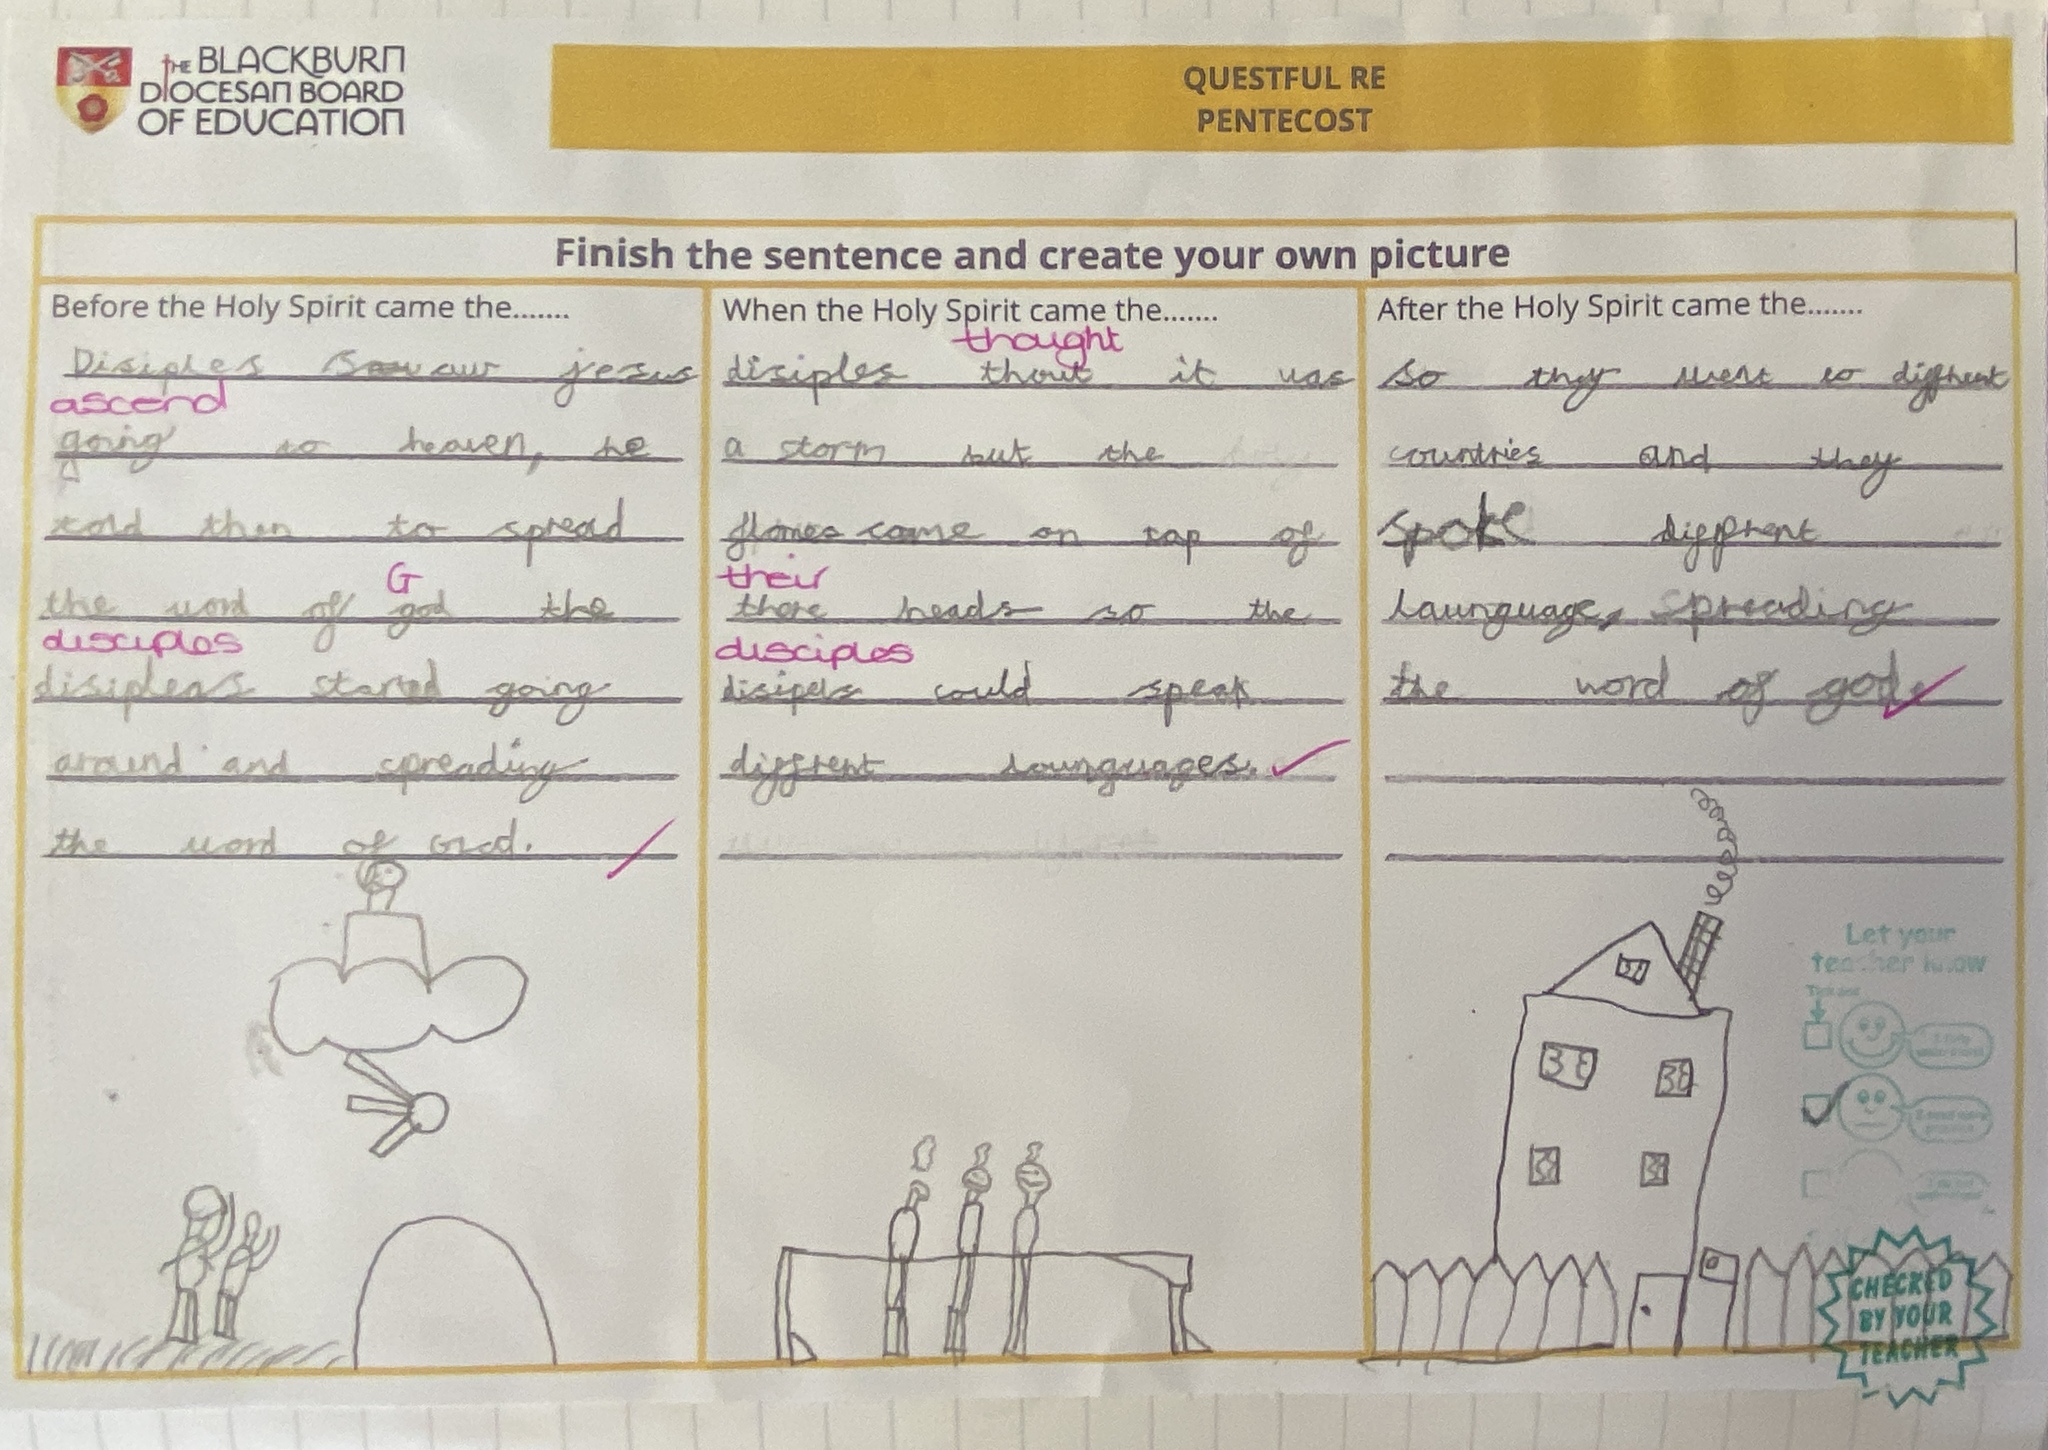 THE BLACKBURN
DIOCESAN BOARD
OF EDUCATION
QUESTFUL RE
PENTECOST
Finish the sentence and create your own picture
Before the Holy Spirit came the.......
Disiples jesus
ascend
going to heaven, he
told then to spread
the word of god the
G
disciples
disipleas started going
around and spreading
the word of God.
When the Holy Spirit came the.......
thought
disiples thout it was
a storm but the
flames came on top of
their
there heads so the
disciples
disipels could speak
diffrent launguages.
After the Holy Spirit came the.......
so they went to diffrent
countries and they
spoke diffrent
launguage, spreading
the word of god.
Let your
teacher know
Tick one
CHECKED
BY YOUR
TEACHER